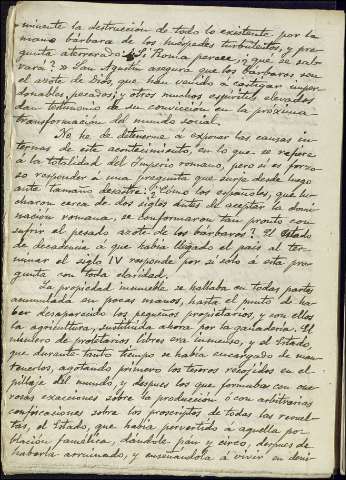 minente la destrucción de todo lo existente por la
mano bárbara de los huéspedes turbulentos, y pre-
gunta aterrorado: "¿Si Roma perece, que se sal-
vará?" San Agustín asegura que los bárbaros son
el azote de Dios, que han venido a castigar imper-
donables pecados; y otros muchos espíritus elevados
dan testimonio de su convicción en la próxima
transformación del mundo social.
No he de detenerme á exponer las causas in-
ternas de este acontecimiento, en lo que se refiere
á la totalidad del Imperio romano, pero sí es forzo-
so responder á una pregunta que surje desde luego
ante tamaño desastre: ¿Cómo los españoles, que lu-
charon cerca de dos siglos antes de aceptar la domi-
nacion romana, se conformaron tan pronto con
sufrir el pesado azote de los bárbaros? El estado
de decadencia á que habia llegado el país al ter-
minar el siglo IV responde por si solo á esta pre-
gunta con toda claridad.
La propiedad inmueble se hallaba en todas partes
acumulada en pocas manos, hasta el punto de ha-
ber desaparecido los pequeños propietarios, y con ellos
la agricultura, sustituida ahora por la ganadería. El
número de proletarios libres era inmenso, y el Estado,
que durante tanto tiempo se habia encargado de man-
tenerlos, agotando primero los tesoros recojidos en el
pillaje del mundo, y despues los que formaban con one-
rosas exacciones sobre la produccion ó con arbitrarias
confiscaciones sobre los proscriptos de todas las revuel-
tas, el Estado, que habia pervertido á aquella po-
blación famélica, dándole pan y circo, despues de
haberla arruinado, y enseñándola á vivir en deni-